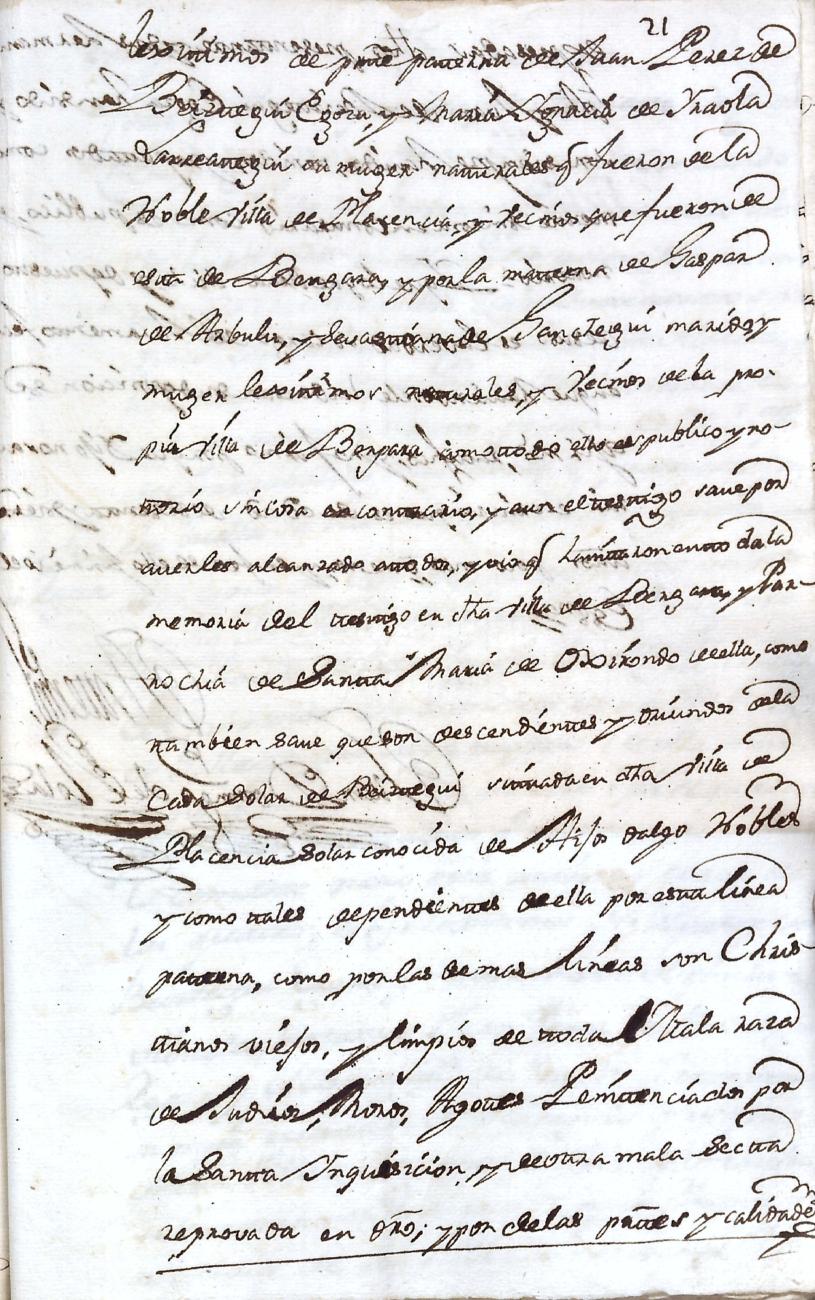 21
lexittimos de partte patterna de Juan Perez de
Beizttegui Egozu, y Maria Ygnacia de Yraola
Larreattegui su muger natturales q fueron de la
Noble Villa de Plazencia, y vecinos que fueron de
estta de Bergara, y por la matterna de Gaspar
de Arbulu, y de Sabasttiana de Ganchegui marido y
muger lexittimos natturales, y vecinos de la pro-
pia Villa de Bergara como ttodo ello es publico y no-
ttorio sin cosa en conttrario, y aun el ttesttigo save por
averles alcanzado a ttodos, y vio q havittaron en ttoda la
memoria del ttesttigo en dha Villa de Bergara, y Par-
rochia de Santta Maria de Oxirondo de ella, como
ttambien save que son descendienttes y oriundos de la
Casa Solar de Beizttegui sittuada en dha Villa de
Placencia Solar conocida de Hijos dalgo Nobles
y como ttales dependienttes de ella por estta linea
patterna, como por las demas lineas son Chris-
ttianos viejos, y limpios de ttoda Mala raza
de Judios, Moros, Agottes Penittenciados por
la Santta Ynquisicion, y de ottra mala Sectta
reprovada en dro; y por de las parttes y calidades